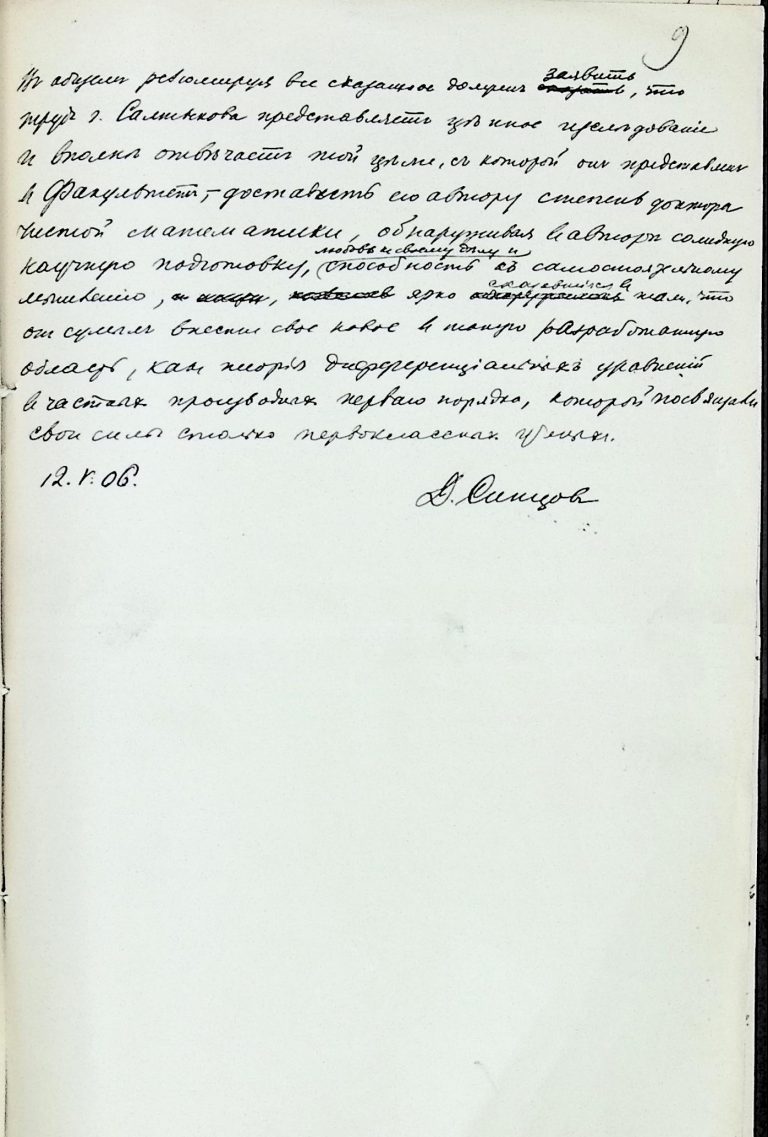 9
Въ общемъ резюмируя все сказанное долженъ заявить сказать, что
трудъ г. Салтыкова представляетъ цѣнное изслѣдованіе
и вполнѣ отвѣчаетъ той цѣли, съ которой онъ представленъ
въ Факультетъ, – доставить его автору степень доктора
чистой математики, обнаруживая въ авторѣ солидную
научную подготовку, любовь къ своему дѣлу и способность къ самостоятельному
мышленію, ярко сказавшіяся въ томъ, что
онъ сумѣлъ внести свое новое въ такую разработанную
область, какъ теорія дифференціальныхъ уравненій
въ частныхъ производныхъ перваго порядка, которой посвящали
свои силы столько первоклассныхъ ученыхъ.
12.V.06.
Д. Синцовъ